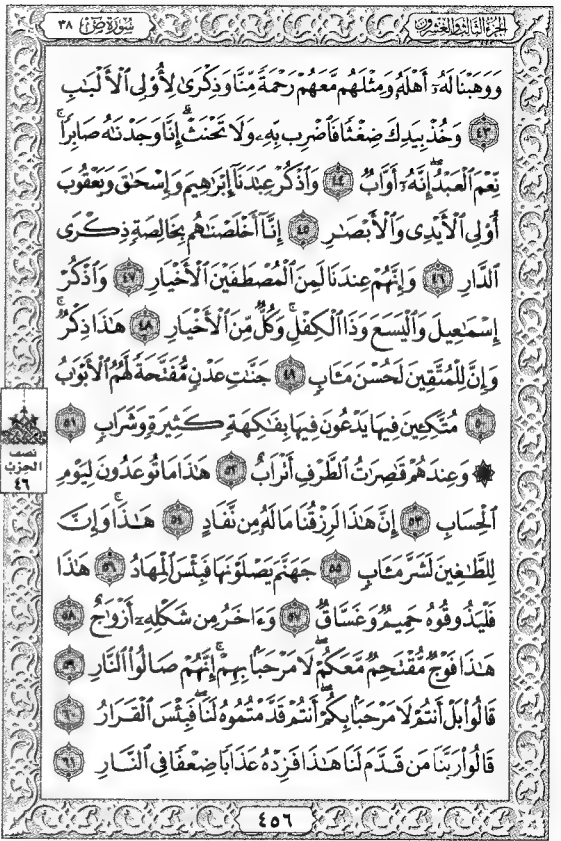 الجزء الثالث والعشرون
سورة ص ٣٨
وَوَهَبْنَا لَهُۥٓ أَهْلَهُۥ وَمِثْلَهُم مَّعَهُمْ رَحْمَةً مِّنَّا وَذِكْرَىٰ لِأُو۟لِى ٱلْأَلْبَـٰبِ
٤٣ وَخُذْ بِيَدِكَ ضِغْثًا فَٱضْرِب بِّهِۦ وَلَا تَحْنَثْ ۗ إِنَّا وَجَدْنَـٰهُ صَابِرًا ۚ
نِّعْمَ ٱلْعَبْدُ ۖ إِنَّهُۥٓ أَوَّابٌ ٤٤ وَٱذْكُرْ عِبَـٰدَنَآ إِبْرَٰهِيمَ وَإِسْحَـٰقَ وَيَعْقُوبَ
أُو۟لِى ٱلْأَيْدِى وَٱلْأَبْصَـٰرِ ٤٥ إِنَّآ أَخْلَصْنَـٰهُم بِخَالِصَةٍ ذِكْرَى
ٱلدَّارِ ٤٦ وَإِنَّهُمْ عِندَنَا لَمِنَ ٱلْمُصْطَفَيْنَ ٱلْأَخْيَارِ ٤٧ وَٱذْكُرْ
إِسْمَـٰعِيلَ وَٱلْيَسَعَ وَذَا ٱلْكِفْلِ ۖ وَكُلٌّ مِّنَ ٱلْأَخْيَارِ ٤٨ هَـٰذَا ذِكْرٌ ۚ
وَإِنَّ لِلْمُتَّقِينَ لَحُسْنَ مَـَٔابٍ ٤٩ جَنَّـٰتِ عَدْنٍ مُّفَتَّحَةً لَّهُمُ ٱلْأَبْوَٰبُ
٥٠ مُتَّكِـِٔينَ فِيهَا يَدْعُونَ فِيهَا بِفَـٰكِهَةٍ كَثِيرَةٍ وَشَرَابٍ ٥١
۞ وَعِندَهُمْ قَـٰصِرَٰتُ ٱلطَّرْفِ أَتْرَابٌ ٥٢ هَـٰذَا مَا تُوعَدُونَ لِيَوْمِ
ٱلْحِسَابِ ٥٣ إِنَّ هَـٰذَا لَرِزْقُنَا مَا لَهُۥ مِن نَّفَادٍ ٥٤ هَـٰذَا ۚ وَإِنَّ
لِلطَّـٰغِينَ لَشَرَّ مَـَٔابٍ ٥٥ جَهَنَّمَ يَصْلَوْنَهَا فَبِئْسَ ٱلْمِهَادُ ٥٦ هَـٰذَا
فَلْيَذُوقُوهُ حَمِيمٌ وَغَسَّاقٌ ٥٧ وَءَاخَرُ مِن شَكْلِهِۦٓ أَزْوَٰجٌ ٥٨
هَـٰذَا فَوْجٌ مُّقْتَحِمٌ مَّعَكُمْ ۖ لَا مَرْحَبًۢا بِهِمْ ۚ إِنَّهُمْ صَالُوا۟ ٱلنَّارِ ٥٩
قَالُوا۟ بَلْ أَنتُمْ لَا مَرْحَبًۢا بِكُمْ ۖ أَنتُمْ قَدَّمْتُمُوهُ لَنَا ۖ فَبِئْسَ ٱلْقَرَارُ ٦٠
قَالُوا۟ رَبَّنَا مَن قَدَّمَ لَنَا هَـٰذَا فَزِدْهُ عَذَابًا ضِعْفًا فِى ٱلنَّارِ ٦١
نصف
الحزب
٤٦
٤٥٦